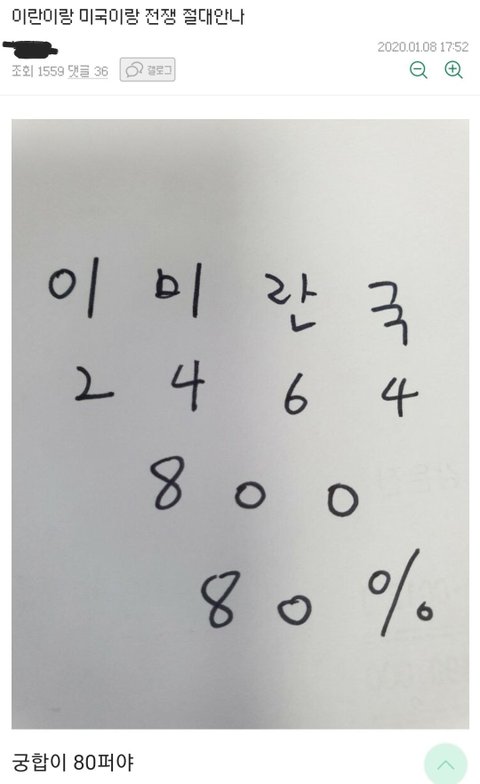 이란이랑 미국이랑 전쟁 절대안나
2020.01.08 17:52
조회 1559 댓글 36 갤로그
이 미 란 국
2 4 6 4
8 0 0
8 0 %
궁합이 80퍼야